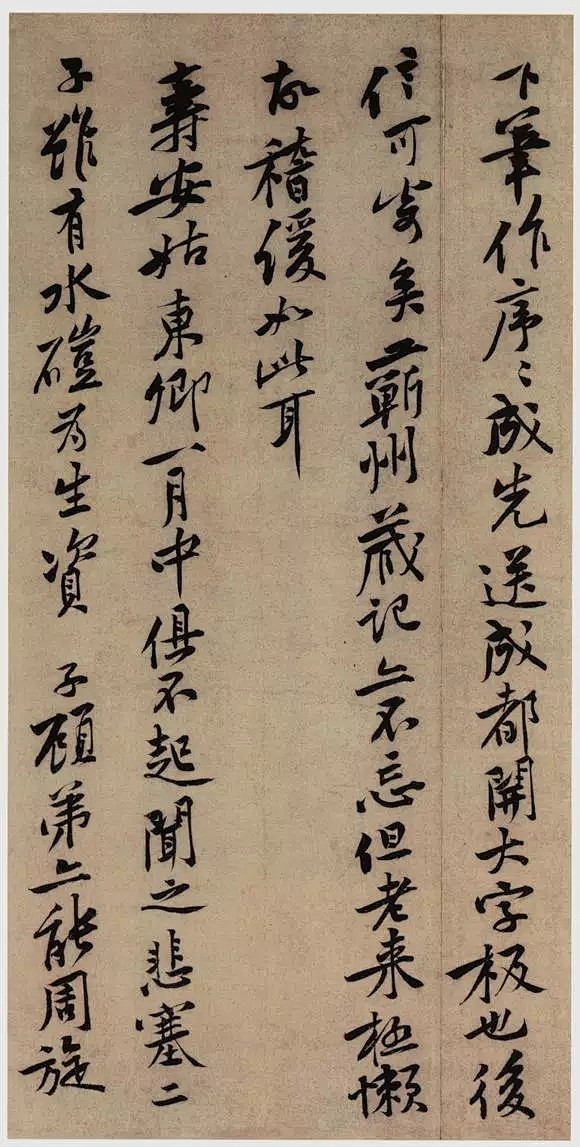 下筆作序〻成先送成都開大字板也後
信可寄矣蘄州藏記亦不忘但老来極懶
故稽緩如此耳
壽安姑東卿一月中俱不起聞之悲塞二
子雖有水磑为生資 子顧弟亦能周旋